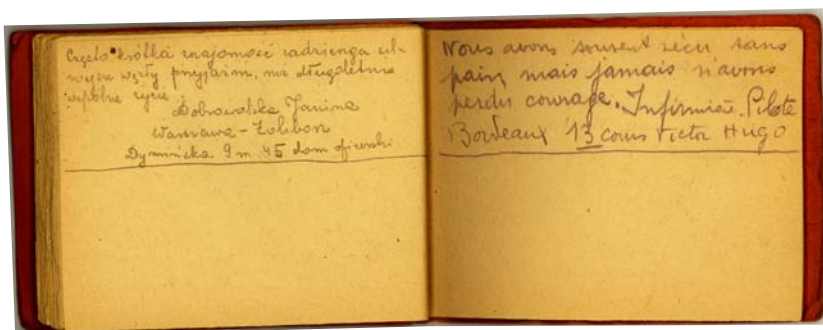 Często krótka znajomość zadzierzga sil-
niejsze węzły przyjaźni, niż długoletnie
wspólne życie.
Dobrowolska Janina
Warszawa - Żolibor
Dymińska 9 m 45 dom oficerski
Nous avons souvent vécu sans
pain, mais jamais n'avons
perdu courage. Infirmière. Pilote
Bordeaux 13 cours Victor Hugo